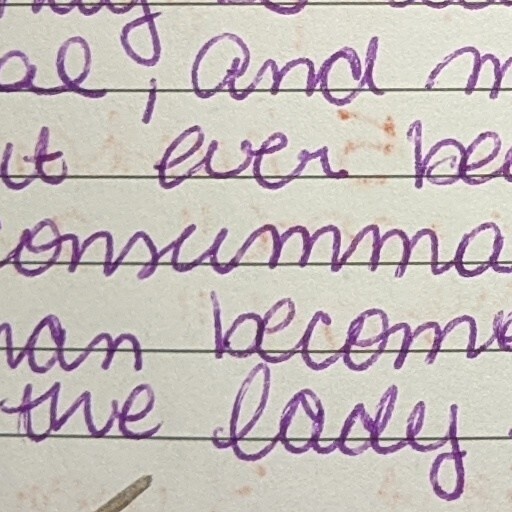 al, and m
it ever be
onsumma
an become
the lady